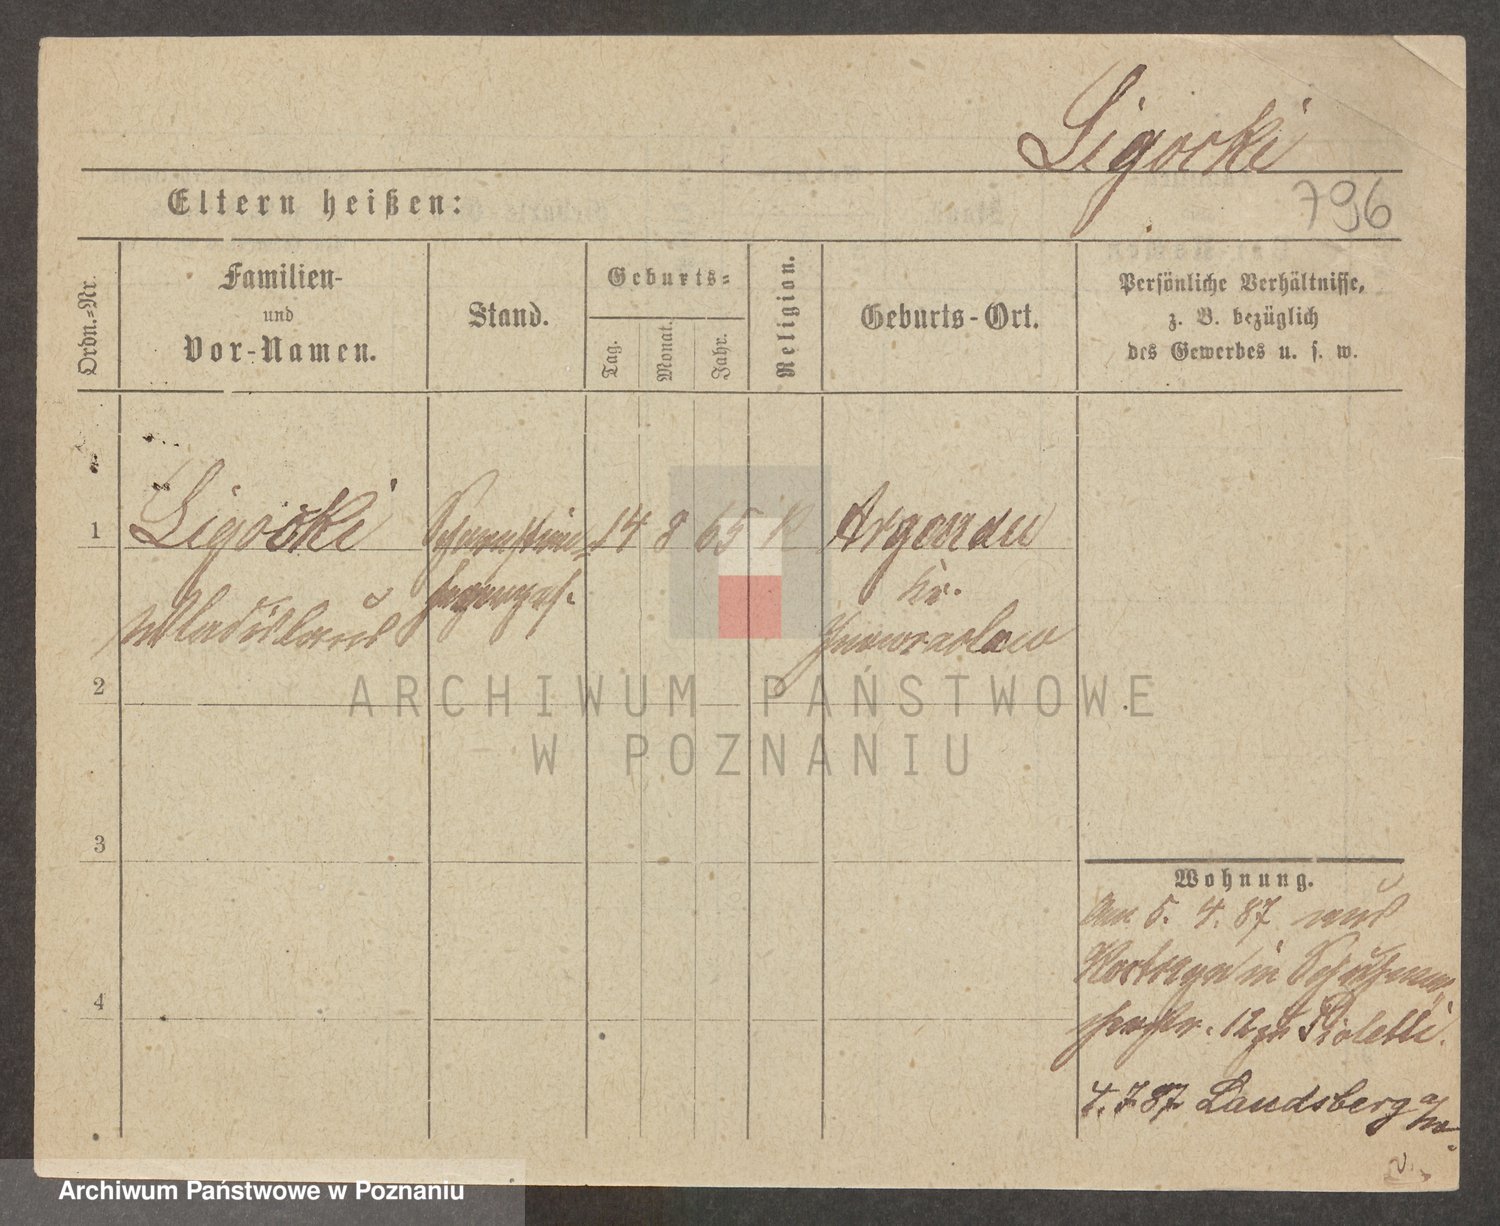 Ligocki
Eltern heißen:
796
Ordn.-Nr.
Familien-
und
Vor-Namen.
Stand.
Geburts-
Tag.
Monat.
Jahr.
Religion.
Geburts-Ort.
Persönliche Verhältnisse,
z. B. bezüglich
des Gewerbes u. s. w.
1
Ligocki
Schornstein-
fegerges.
14 8 65 K
Argenau
Kr.
Inowraclaw
Wladislaus
2
ARCHIWUM PAŃSTWOWE
W POZNANIU
3
Wohnung.
Am 5. 4. 87 aus
in
4
12 zu
4. 7 87 Landsberg a/W.
Archiwum Państwowe w Poznaniu